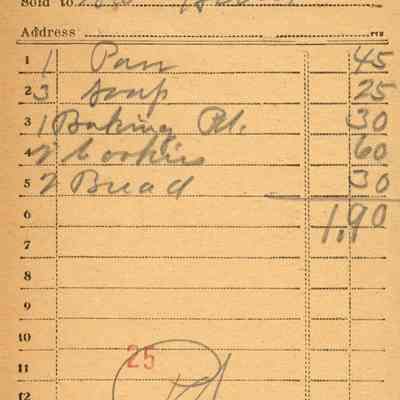 Sold to
Address
1 1 Pan 45
2 3 Soap 25
3 1 Baking Pd. 30
4 2 Cookies 60
5 2 Bread 30
6 1,90
7
8
9
10
11 25
12